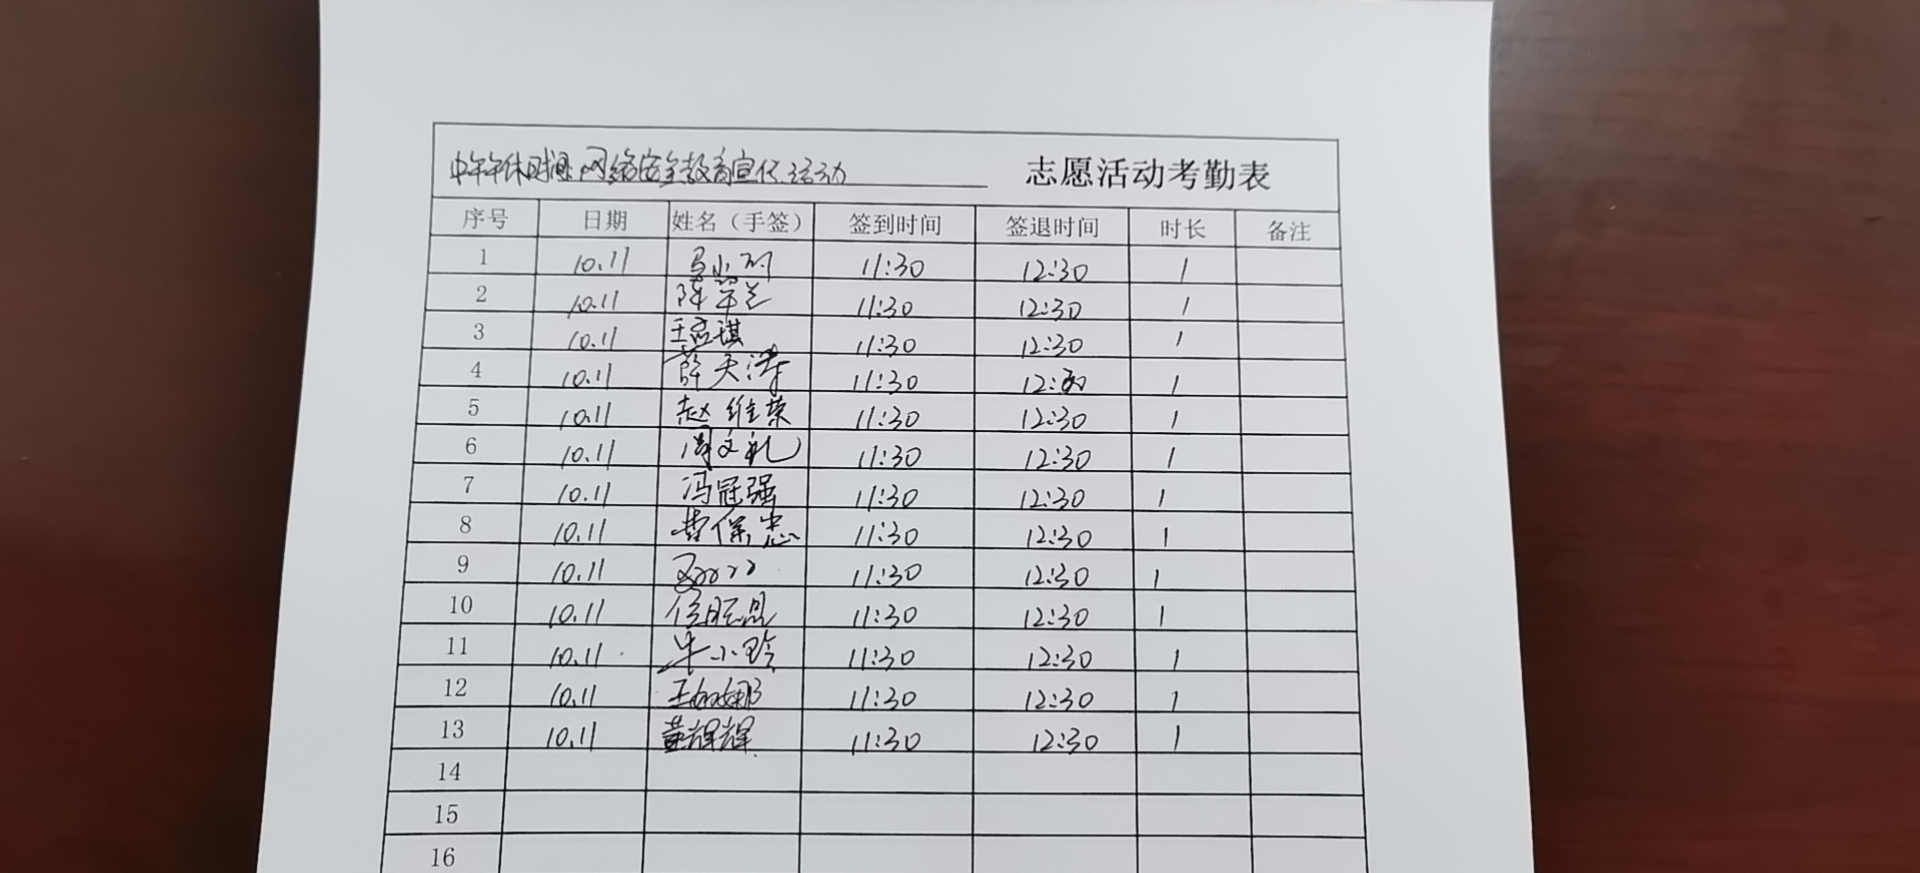 中午午休时间 网络安全教育宣传活动 志愿活动考勤表
序号 日期 姓名（手签） 签到时间 签退时间 时长 备注
1 10.11 11:30 12:30 1
2 10.11 11:30 12:30 1
3 10.11 王启琪 11:30 12:30 1
4 10.11 薛天泽 11:30 12:30 1
5 10.11 赵维荣 11:30 12:30 1
6 10.11 周文礼 11:30 12:30 1
7 10.11 冯冠强 11:30 12:30 1
8 10.11 曹保忠 11:30 12:30 1
9 10.11 11:30 12:30 1
10 10.11 11:30 12:30 1
11 10.11 牛小玲 11:30 12:30 1
12 10.11 王娜娜 11:30 12:30 1
13 10.11 董辉辉 11:30 12:30 1
14
15
16